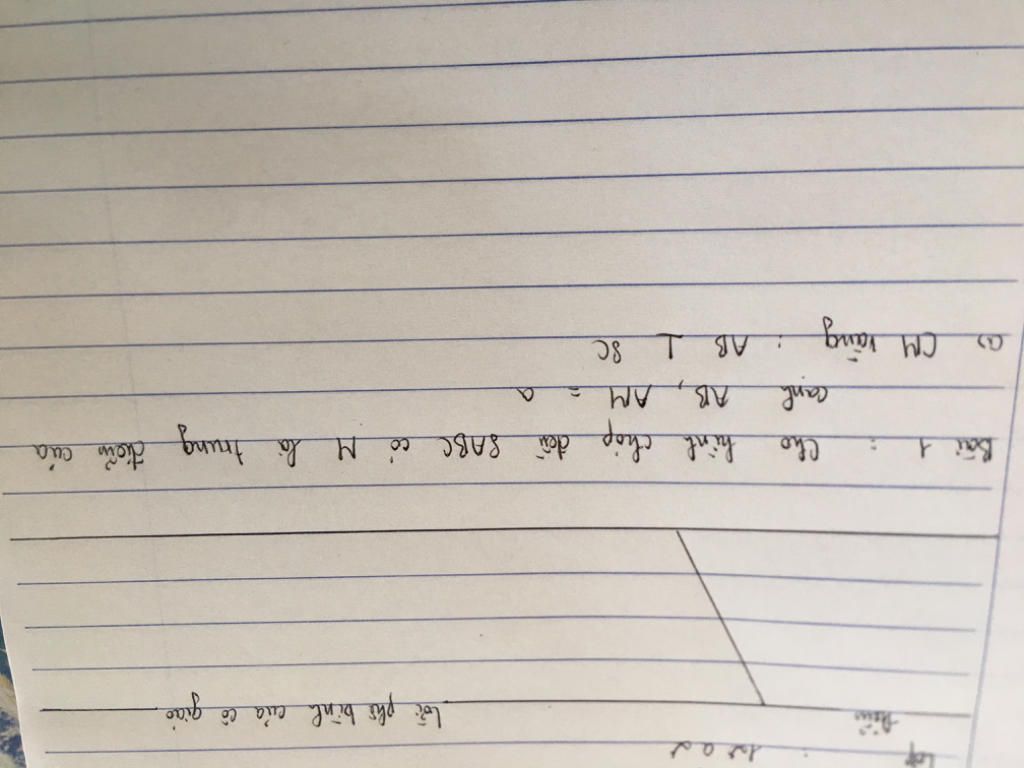 Lớp : 12 a2
Điểm Lời phê bình của cô giáo
Bài 1 : Cho hình chóp đều SABC có M là trung điểm của
cạnh AB, AM = a
a) CM rằng : AB ⊥ SC